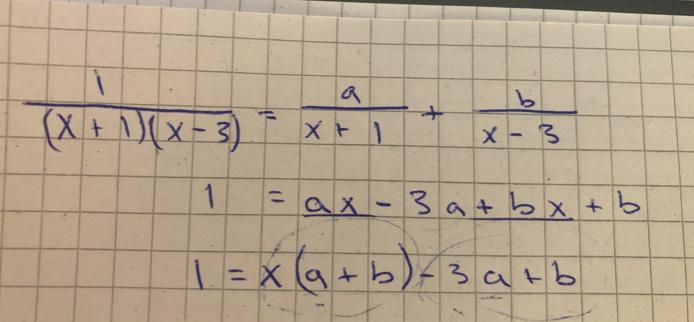 1/((x + 1)(x - 3)) = a/(x + 1) + b/(x - 3)
1 = ax - 3a + bx + b
1 = x(a + b) - 3a + b